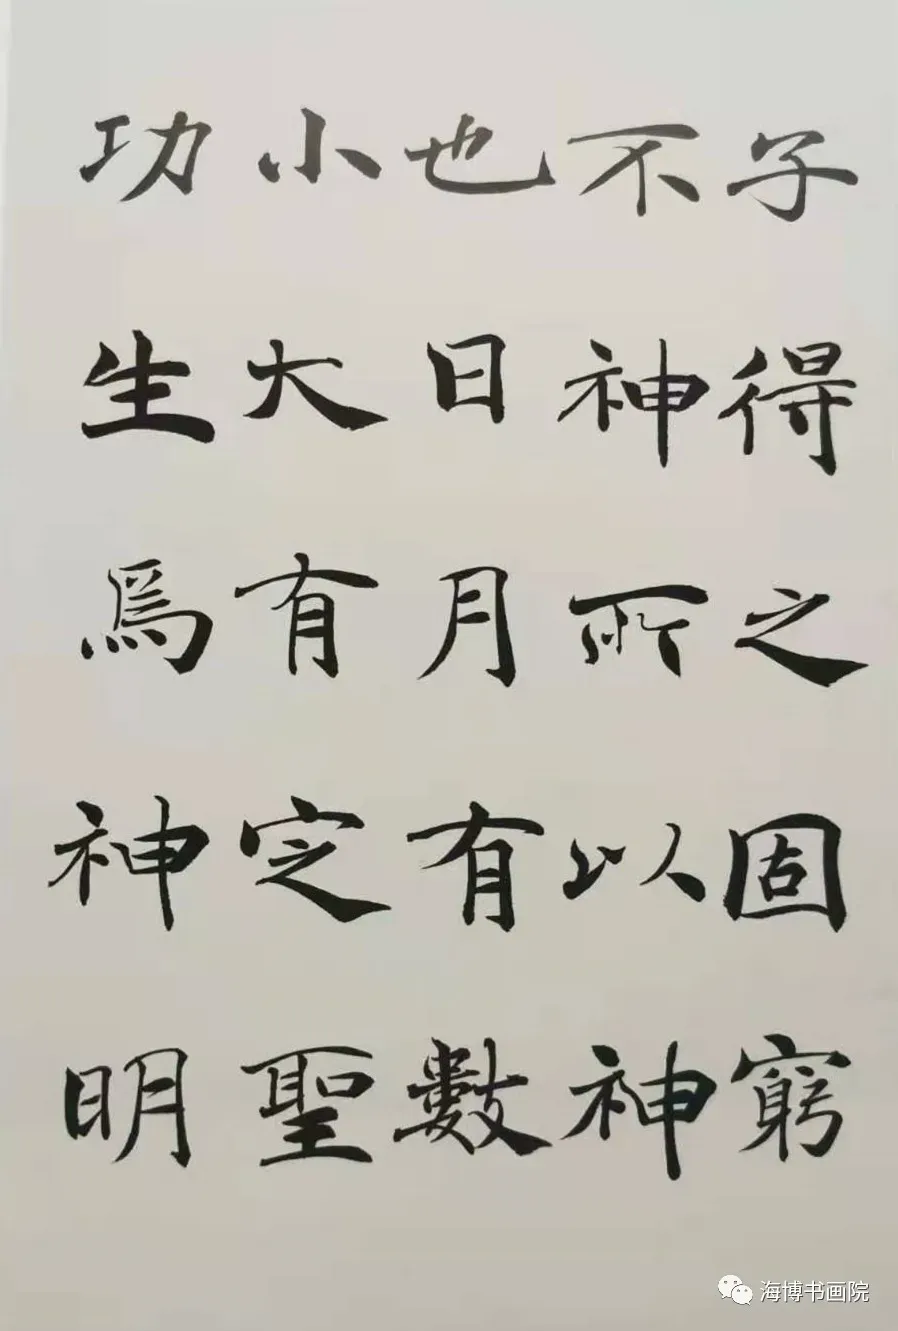 子得之固窮
不神所以神
也日月有數
小大有定聖
功生焉神明
海博书画院